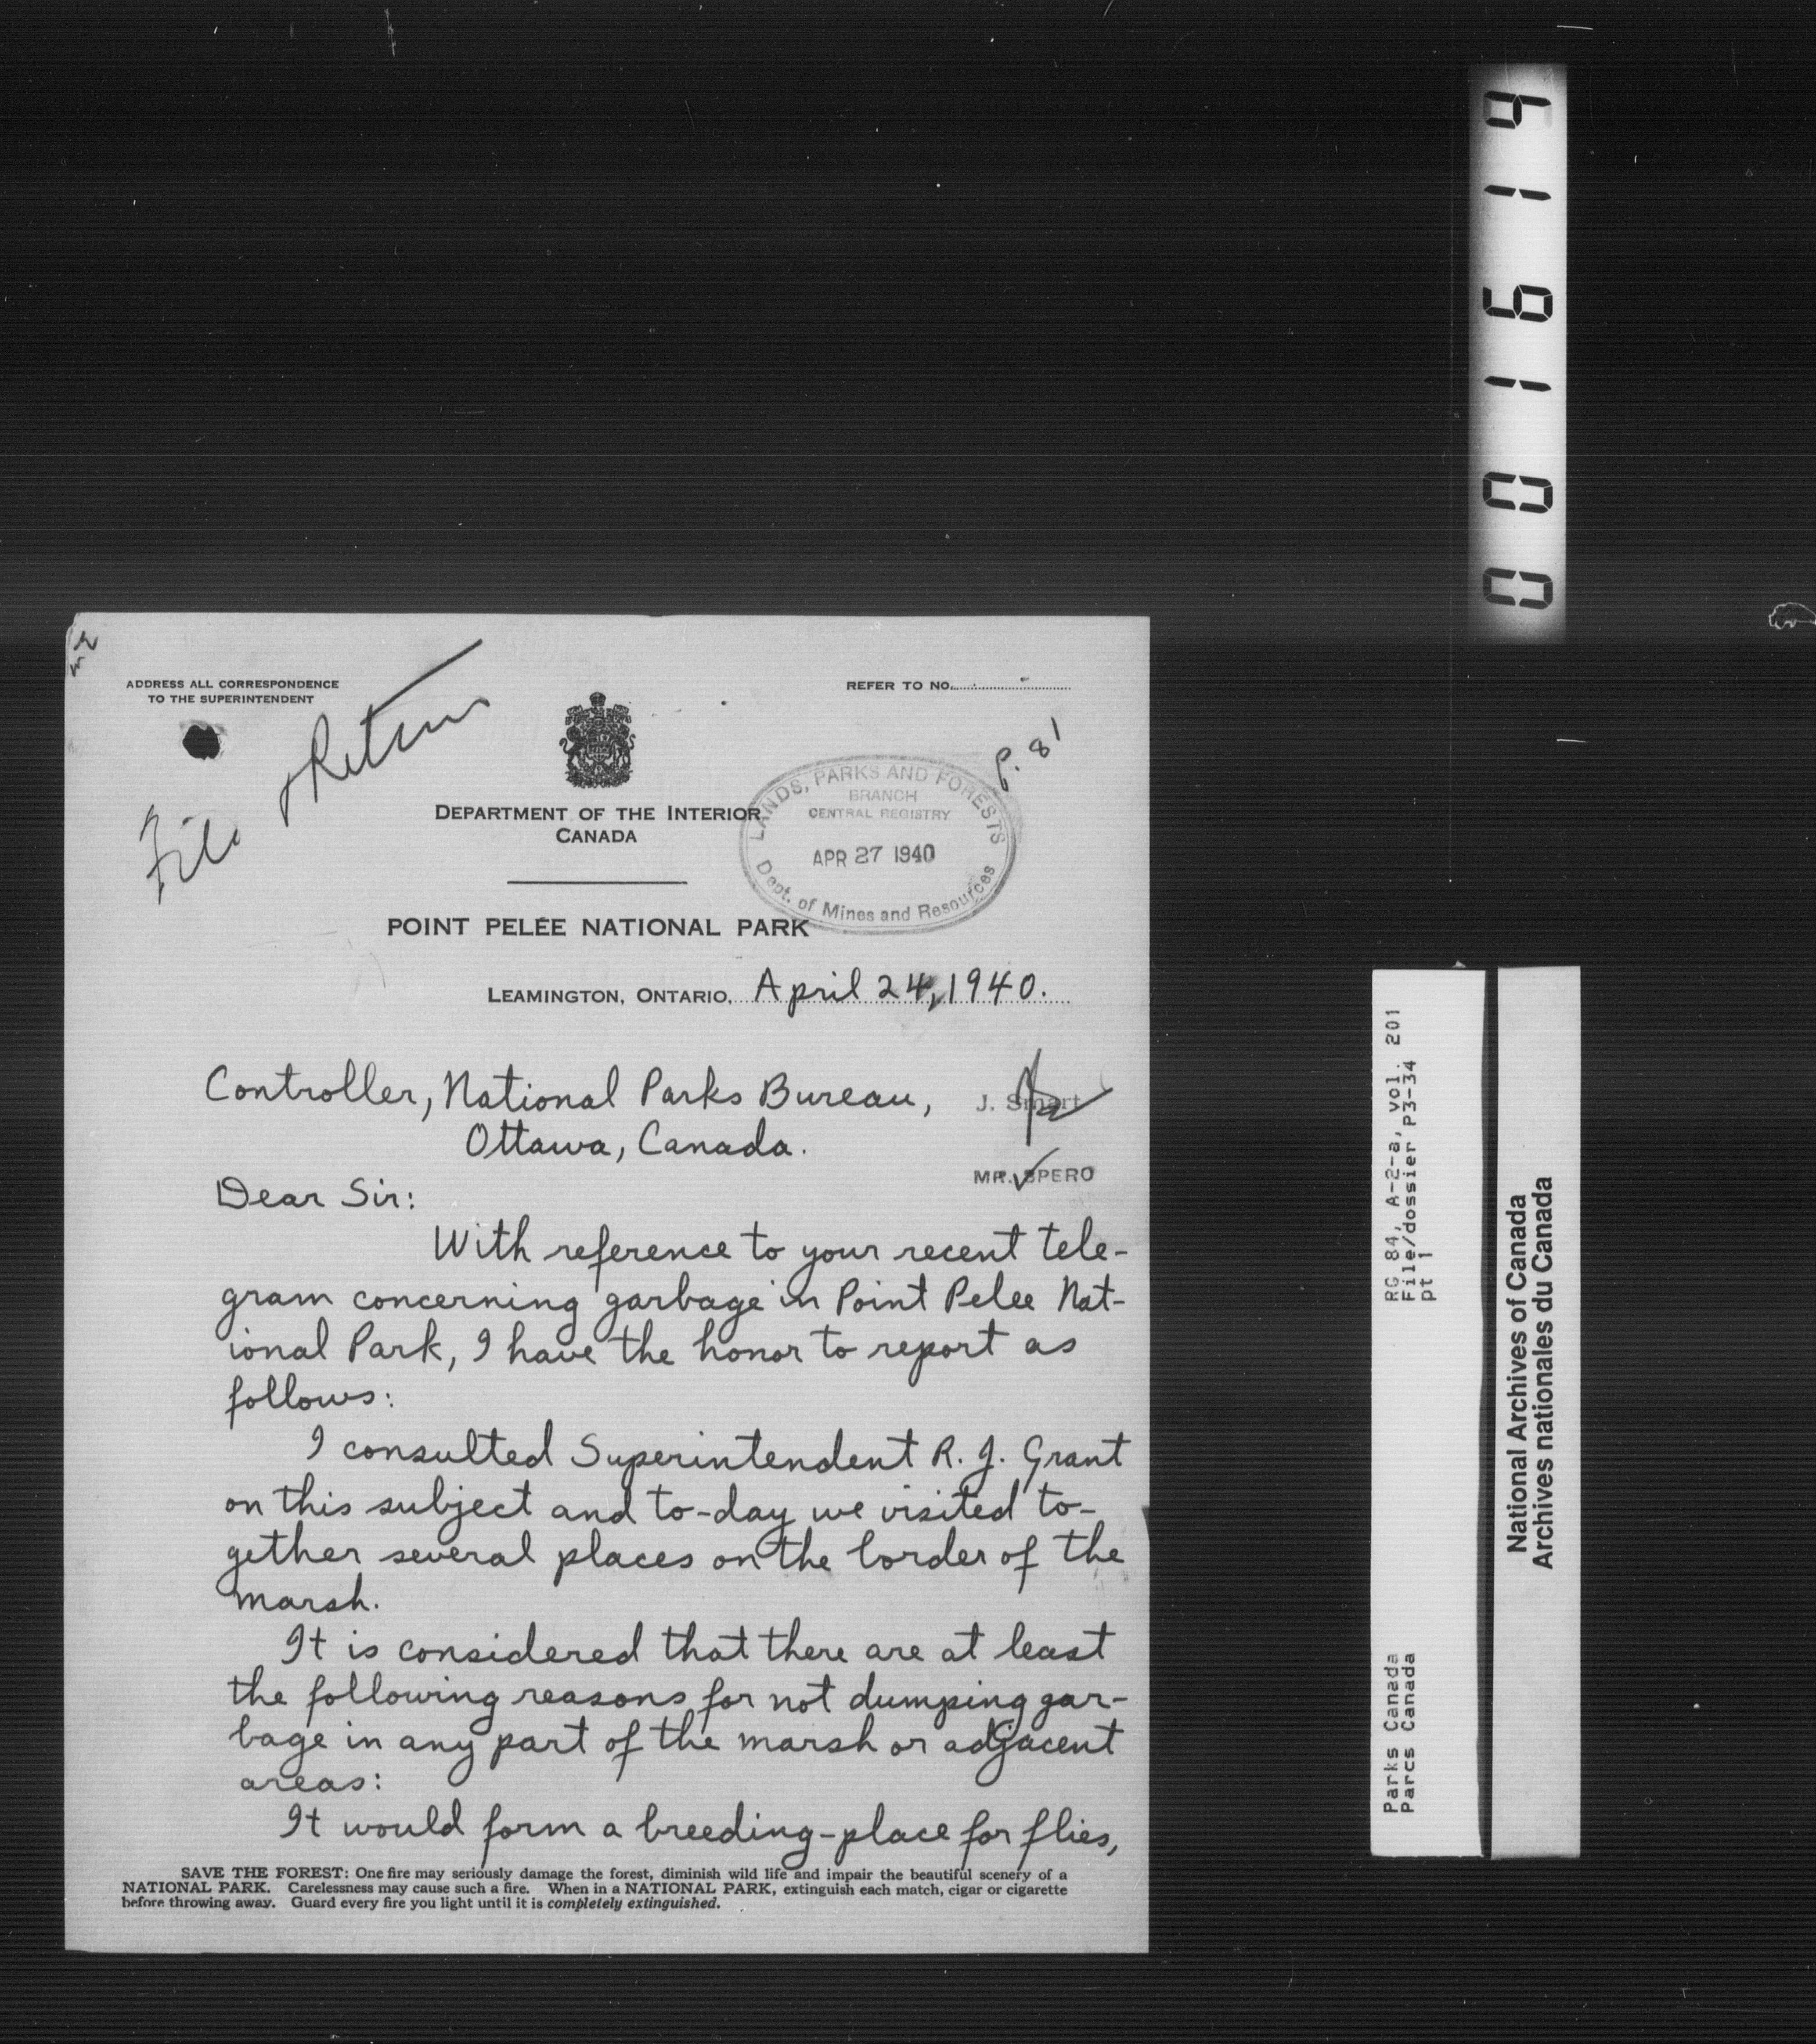 ADDRESS ALL CORRESPONDENCE
TO THE SUPERINTENDENT
REFER TO NO.
File & Return
P. 81
DEPARTMENT OF THE INTERIOR
CANADA
LANDS, PARKS AND FORESTS
BRANCH
CENTRAL REGISTRY
APR 27 1940
Dept. of Mines and Resources
POINT PELEE NATIONAL PARK
LEAMINGTON, ONTARIO, April 24, 1940.
Controller, National Parks Bureau,
J. Smart
Ottawa, Canada.
MR. SPERO
Dear Sir:
With reference to your recent tele-
gram concerning garbage in Point Pelee Nat-
ional Park, I have the honor to report as
follows:
I consulted Superintendent R. J. Grant
on this subject and to-day we visited to-
gether several places on the border of the
marsh.
It is considered that there are at least
the following reasons for not dumping gar-
bage in any part of the marsh or adjacent
areas:
It would form a breeding-place for flies,
SAVE THE FOREST: One fire may seriously damage the forest, diminish wild life and impair the beautiful scenery of a
NATIONAL PARK. Carelessness may cause such a fire. When in a NATIONAL PARK, extinguish each match, cigar or cigarette
before throwing away. Guard every fire you light until it is completely extinguished.
001619
RG 84, A-2-a, vol. 201
File/dossier P3-34
pt 1
Parks Canada
Parcs Canada
National Archives of Canada
Archives nationales du Canada